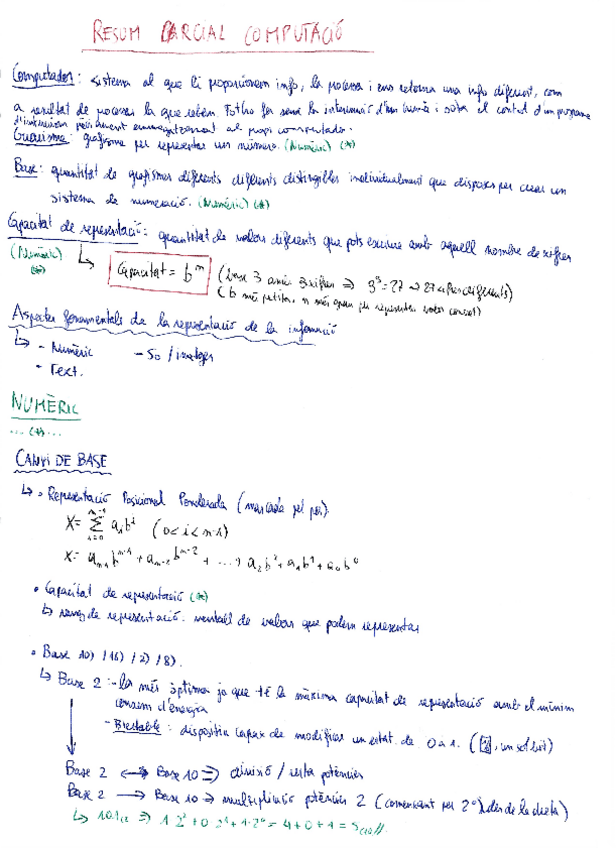 RESUM PARCIAL COMPUTACIÓ
Computador: sistema al que li proporcionem info, la processa i ens retorna una info diferent, com
a resultat de processar la que rebem. Tot ho fa sense la intervenció d'un humà i sota el control d'un programa
d'instruccions prèviament emmagatzemat al propi computador.
Guarisme: grafisme per representar un número. (Numèric) (*)
Base: quantitat de grafismes diferents diferents distingibles individualment que disposes per crear un
sistema de numeració. (Numèric) (*)
Capacitat de representació: quantitat de valors diferents que pots escriure amb aquell nombre de xifres
(Numèric)
(*)
Capacitat = b^m (base 3 amb 3 xifres ⇒ 3^3 = 27 → 27 xifres diferents)
(b més petita, n més gran per representar valor concret)
Aspectes fonamentals de la representació de la informació
↳ - Numèric - So / imatges
- Text.
NUMÈRIC
... (*) ...
CANVI DE BASE
↳ • Representació Posicional Ponderada (marcada pel pes)
X = Σ aᵢbⁱ (0<i<n-1)
X = aₘ₋₁b^m-1 + aₘ₋₂b^m-2 + ... + a₂b² + a₁b¹ + a₀b⁰
• Capacitat de representació (*)
↳ rang de representació: ventall de valors que podem representar
• Base 10) / 16) / 2) / 8).
↳ Base 2: - la més òptima ja que té la màxima capacitat de representació amb el mínim
consum d'energia
- Biestable: dispositiu capaç de modificar un estat de 0 a 1. ( , un sol bit)
Base 2 ⟷ Base 10 ⇒ divisió / resta potències
Base 2 ⟶ Base 10 ⇒ multiplicació potències 2 (començant per 2⁰) des de la dreta)
↳ 101₍₂ ⇒ 1·2²+0·2¹+1·2⁰ = 4+0+1 = 5₍₁₀